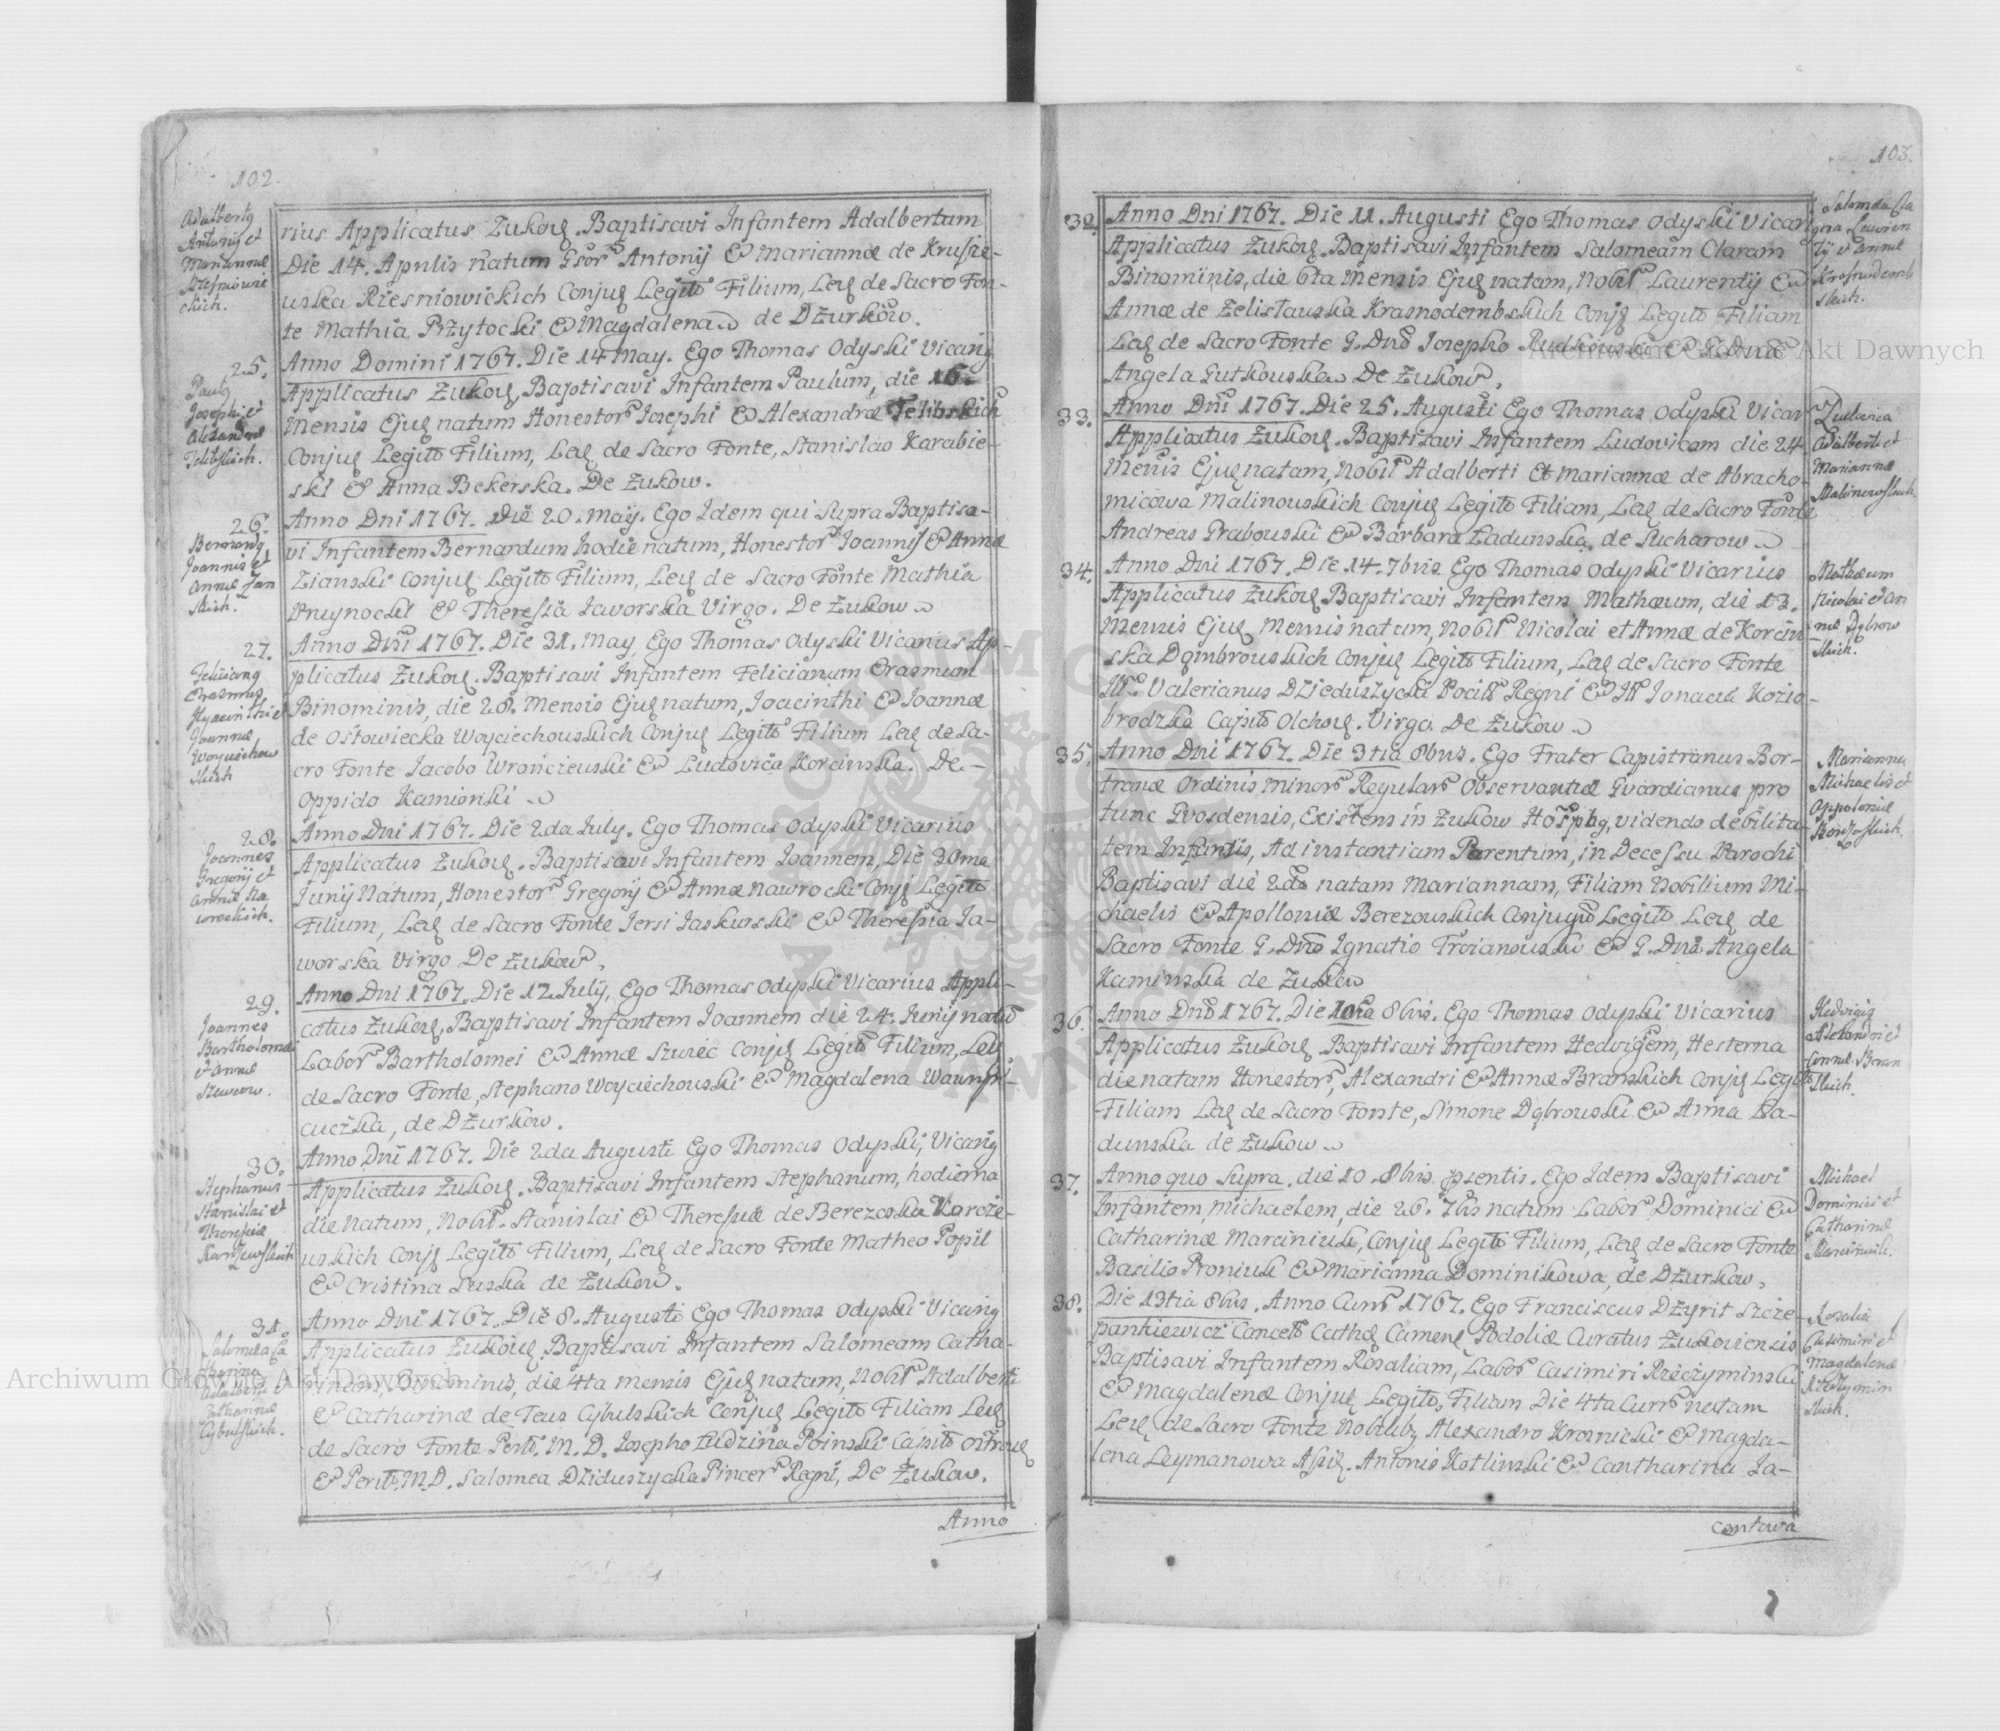 102.
Adalbertg
Antonij et
Mariannæ
Rzesniowie
ckich.
rius Applicatus Zukoụ. Baptisavi Infantem Adalbertum
Die 14. Aprilis natum Gsor Antonij & Mariannæ de Krusie-
uska Rzesniowickich Conjuę Legitō Filium, Leṿ de Sacro Fon-
te Mathia Przytocki & Magdalena de Dżurkow.
25.
Paulg
Josephi et
Alexandræ
Telibskich.
Anno Domini 1767. Die 14 May. Ego Thomas Odyski Vicarig
Applicatus Zukoụ, Baptisavi Infantem Paulum, die 16.
Mensis Ejuę natum Honestor Josephi & Alexandræ Telibskich
Conjuę Legitō Filium, Leṿ de Sacro Fonte, Stanislao Karabie-
ski & Anna Bekerska. De Zukow.
26.
Bernardg
Joannis et
Annæ Zian
skich.
Anno Dni 1767. Die 20. May. Ego Idem qui Supra Baptisa-
vi Infantem Bernardum hodie natum, Honestor Joannis & Annæ
Zianski Conjuę Legitō Filium, Leṿ de Sacro Fonte Mathia
Pruynocki & Theresia Jaworska Virgo. De Zukow
27.
Feliciang
Erasmus
Hyacinthi et
Joannæ
Woyciechow
skich
Anno Dni 1767. Die 31. May, Ego Thomas Odyski Vicarius Ap-
plicatus Zukoụ. Baptisavi Infantem Felicianum Erasmum
Binominis, die 28. Mensis Ejuę natum, Joacinthi & Joannæ
de Ostowiecka Woyciechouskich Conjuę Legitō Filium Leṿ de Sa-
cro Fonte Jacobo Wrońcieuski & Ludovica Korcinska. De-
Oppido Kamionki
28.
Joannes
Gregorij et
Annæ Na
wrockich.
Anno Dni 1767. Die 2da July. Ego Thomas Odyski Vicarius
Applicatus Zukoụ. Baptisavi Infantem Joannem, Die 30ma
Junij Natum, Honestor Gregorij & Annæ Nawrocki Conję Legitō
Filium, Leṿ de Sacro Fonte Jersi Jaskurski & Theresia Ja-
worska Virgo De Zukow.
29.
Joannes
Bartholomæi
et Annæ
Szwecow.
Anno Dni 1767. Die 12. July, Ego Thomas Odyski Vicarius Appli-
catus Zukoụ, Baptisavi Infantem Joannem die 24. Junij natū
Labor Bartholomei & Annæ Szwiec Conjuę Legitō Filium, Leṿ
de Sacro Fonte, Stephano Woyciechouski & Magdalena Wawryn-
cuczka, de Dżurkow.
30.
Stephanus
Stanislai et
Theresiæ
Karżewskich
Anno Dni 1767. Die 2da Augusti Ego Thomas Odyski, Vicarig
Applicatus Zukoụ. Baptisavi Infantem Stephanum, hodierna
die natum, Nobil. Stanislai & Theresiæ de Berezoska Karoże-
uskich Conję Legitō Filium, Leṿ de Sacro Fonte Matheo Popil
& Cristina Suska de Zukow.
31.
Salomea Ca
tharina
Adalberti et
Catharinæ
Cybulskich.
Anno Dni 1767. Die 8. Augusti Ego Thomas Odyski Vicarig
Applicatus Zukoụ. Baptisavi Infantem Salomeam Catha-
rinam, Binominis, die 4ta mensis Ejuę natam, Nobil Adalberti
& Catharinæ de Teus Cybulskich Conjuę Legitō Filiam Leṿ
de Sacro Fonte Peril. M. D. Josepho Ludzina Poinski Capitō Ostroụ
& Peril. M. D. Salomea Dziduszycka Pincer Regni, De Żukow.
Anno
103.
32.
Anno Dni 1767. Die 11. Augusti Ego Thomas Odyski Vicarig
Applicatus Zukoụ. Baptisavi Infantem Salomeam Claram
Binominis, die 6ta Mensis Ejuę natam, Nobil Laurentij &
Annæ de Zelislauska Krasnodembskich Conję Legitō Filiam
Leṿ de Sacro Fonte G. Dnō Josepho Rudkouski & G. Dna
Angela Gutkouska De Zukow.
Salomea Cla
ra Lauren
tij et Annæ
Krasnodemb
skich.
33.
Anno Dni 1767. Die 25. Augusti Ego Thomas Odyski Vicari
Applicatus Zukoụ. Baptisavi Infantem Ludovicam die 24
Mensis Ejuę natam, Nobil Adalberti Et Mariannæ de Abracho-
micowa Malinouskich Conjuę Legitō Filiam, Leṿ de Sacro Fonte
Andreas Grabouski & Barbara Ladunska. de Sucharow
Ludovica
Adalberti et
Mariannæ
Malinowskich.
34.
Anno Dni 1767. Die 14. 7bris Ego Thomas Odyski Vicarius
Applicatus Zukoụ Baptisavi Infantem Mathæum, die 13.
Mensis Ejuę Mensis natum, Nobil Nicolai et Annæ de Korcin-
ska Dąmbrouskich Conjuę Legitō Filium, Leṿ de Sacro Fonte
Ill. Valerianus Dzieduszycki Pocill Regni & Ill Ionacia Kozie-
brodzka Capitō Olchoụ. Virgo. De Zukow
Mathæum
Nicolai et An
næ Dąbrow
skich.
35.
Anno Dni 1767. Die 3tia 8bris. Ego Frater Capistranus Bor-
tranæ Ordinis Minor Regular Observantiæ Gvardianus pro
tunc Gvosdensis, Existens in Zukow Hospitę, videndo debilita-
tem Infantis, Ad instantiam Parentum, in Decessu Parochi
Baptisavi die 2da natam Mariannam, Filiam Nobilium Mi-
chaelis & Apolloniæ Berezouskich Conjugū Legitō Leṿ de
Sacro Fonte G. Dnō Ignatio Troianouski & G. Dna Angela
Kaminska de Zukow
Marianna
Michaelis et
Appoloniæ
Berezowskich.
36.
Anno Dni 1767. Die 10ma 8bris. Ego Thomas Odyski Vicarius
Applicatus Zukoụ. Baptisavi Infantem Hedvigem, Hesterna
die natam Honestor, Alexandri & Annæ Branskich Conję Legitō
Filiam Leṿ de Sacro Fonte, Simone Dąbrouski & Anna La-
dunska de Zukow
Hedvigis
Alexandri et
Annæ Bran
skich.
37.
Anno quo Supra. die 10. 8bris psentis. Ego Idem Baptisavi
Infantem, Michaelem, die 26. 7bris natum Labor Dominici &
Catharinæ Marciniuk, Conjuę Legitō Filium, Leṿ de Sacro Fonte
Basilio Proniuk & Marianna Dominikowa, de Dżurkow.
Michael
Dominici et
Catharinæ
Marciniuk.
38.
Die 13tia 8bris. Anno Curr 1767. Ego Franciscus Dżyrit Szcze-
pankiewicz Cancell Cathę Camenę Podoliæ Curatus Zukoviensis
Baptisavi Infantem Rosaliam, Labor Casimiri Rzeczyminski
& Magdalenæ Conjuę Legitō, Filiam Die 4ta Curr natam
Leṿ de Sacro Fonte Nobilibę Alexandro Krosnicki & Magda-
lena Leymanowa Assię. Antonio Kotlinski & Cantharina Ja-
Rosalia
Casimiri et
Magdalenæ
Rzeczymin
skich.
centowa
Archiwum Główne Akt Dawnych
Archiwum Główne Akt Dawnych